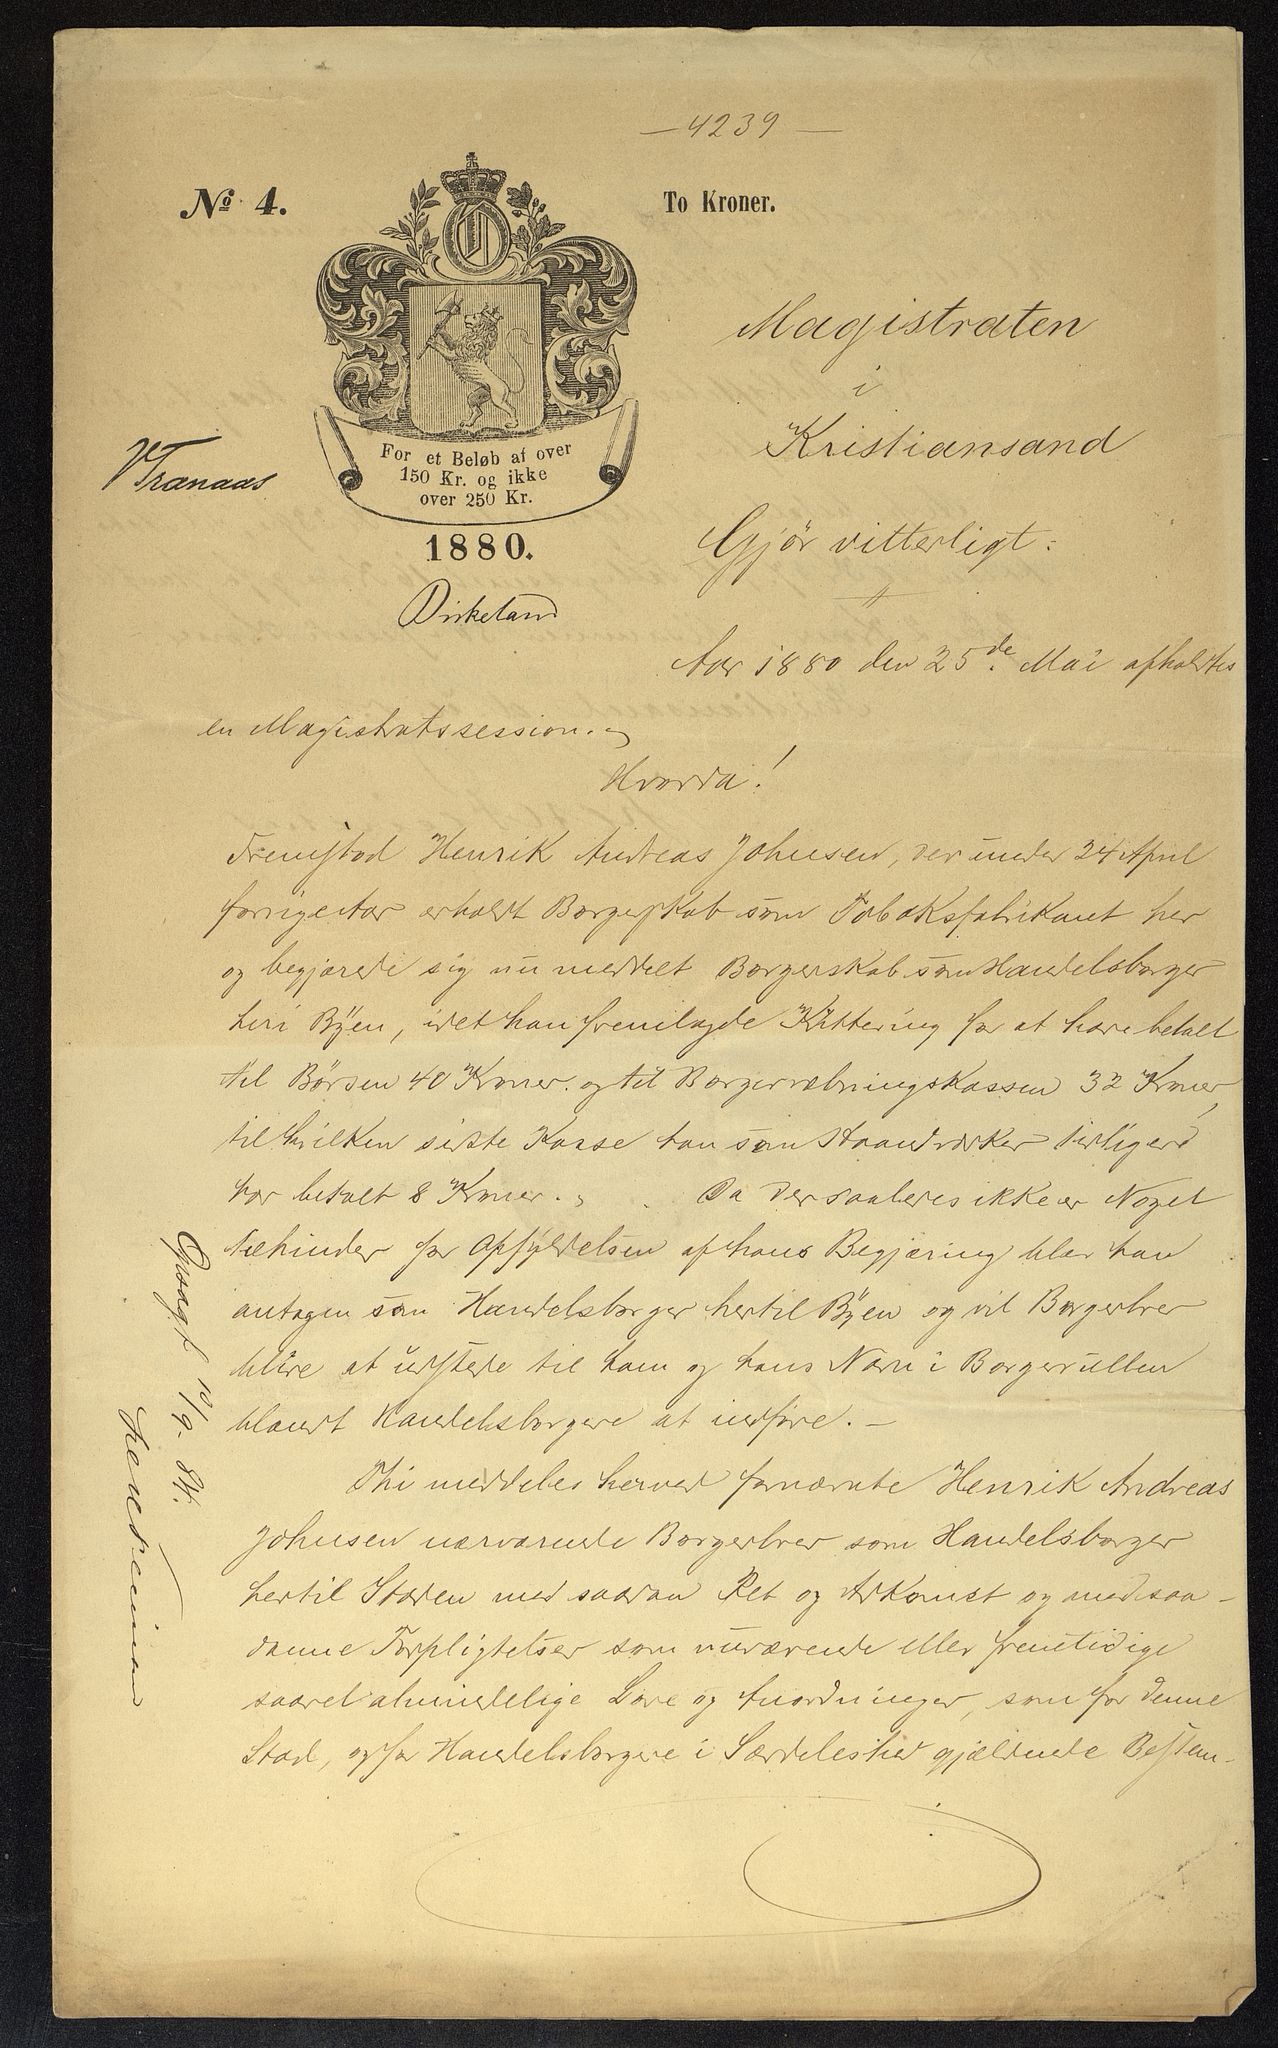 — 4239 —
No 4.
To Kroner.
O
For et Beløb af over
150 Kr. og ikke
over 250 Kr.
1880.
VTranaas
Birkeland
Magistraten
i
Kristiansand
Gjör vitterligt:
Aar 1880 den 25de Mai afholdtes
en Magistratssession.
Hvorda!
Fremstod Henrik Andreas Johnsen, der under 24 April
forrige Aar erholdt Borgerskab som Tobaksfabrikant her
og begjærede sig nu meddelt Borgerskab som Handelsborger
her i Byen, idet han fremlagde Kvittering for at have betalt
til Börsen 40 Kroner og til Borgervæbningskassen 32 Kroner,
til hvilken sidste Kasse han som Haandværker tidligere
har betalt 8 Kroner. Da der saaledes ikke er Noget
til Hinder for Opfyldelsen af hans Begjæring blev han
antagen som Handelsborger hertil Byen og vil Borgerbrev
blive at udstede til ham og hans Navn i Borgerrullen
blandt Handelsborgere at indföre. —
Thi meddeles herved fornævnte Henrik Andreas
Johnsen nærværende Borgerbrev som Handelsborger
hertil Staden med saadan Ret og Adkomst og med saa-
danne Forpligtelser som nuværende eller fremtidige
saavel almindelige Love og Anordninger, som for denne
Stad, og for Handelsborgere i Særdeleshed gjældende Bestem-
Opsagt 10/9. 84.